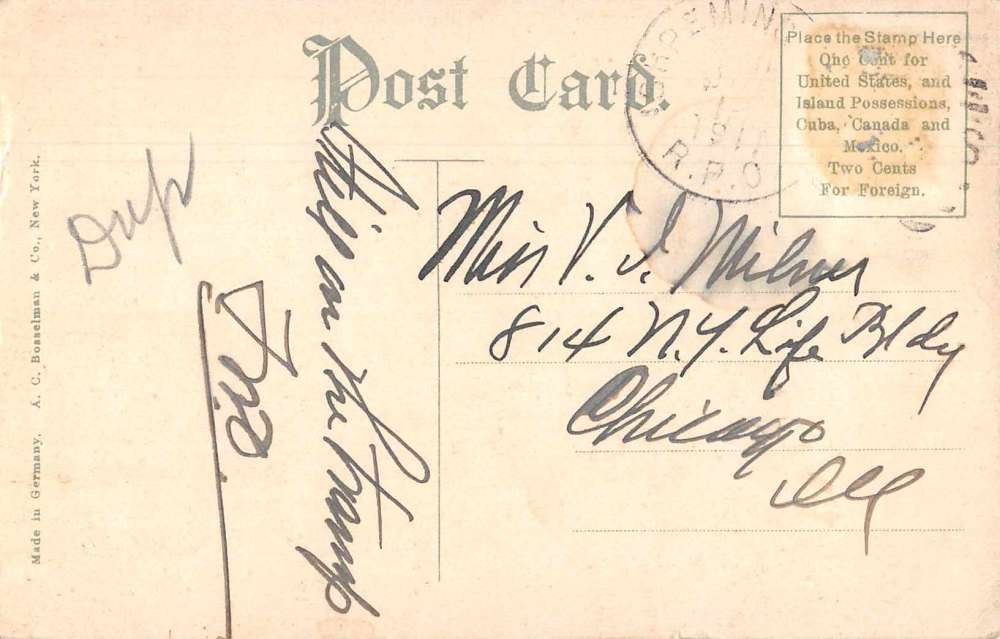 Post Card.
Place the Stamp Here
One Cent for
United States, and
Island Possessions,
Cuba, Canada and
Mexico.
Two Cents
For Foreign.
1911
R.P.O.
Still on the tramp
Dup
Miss V. I. Milner
814 N.Y. Life Bldg
Chicago
Ill
Made in Germany, A. C. Bosselman & Co., New York.